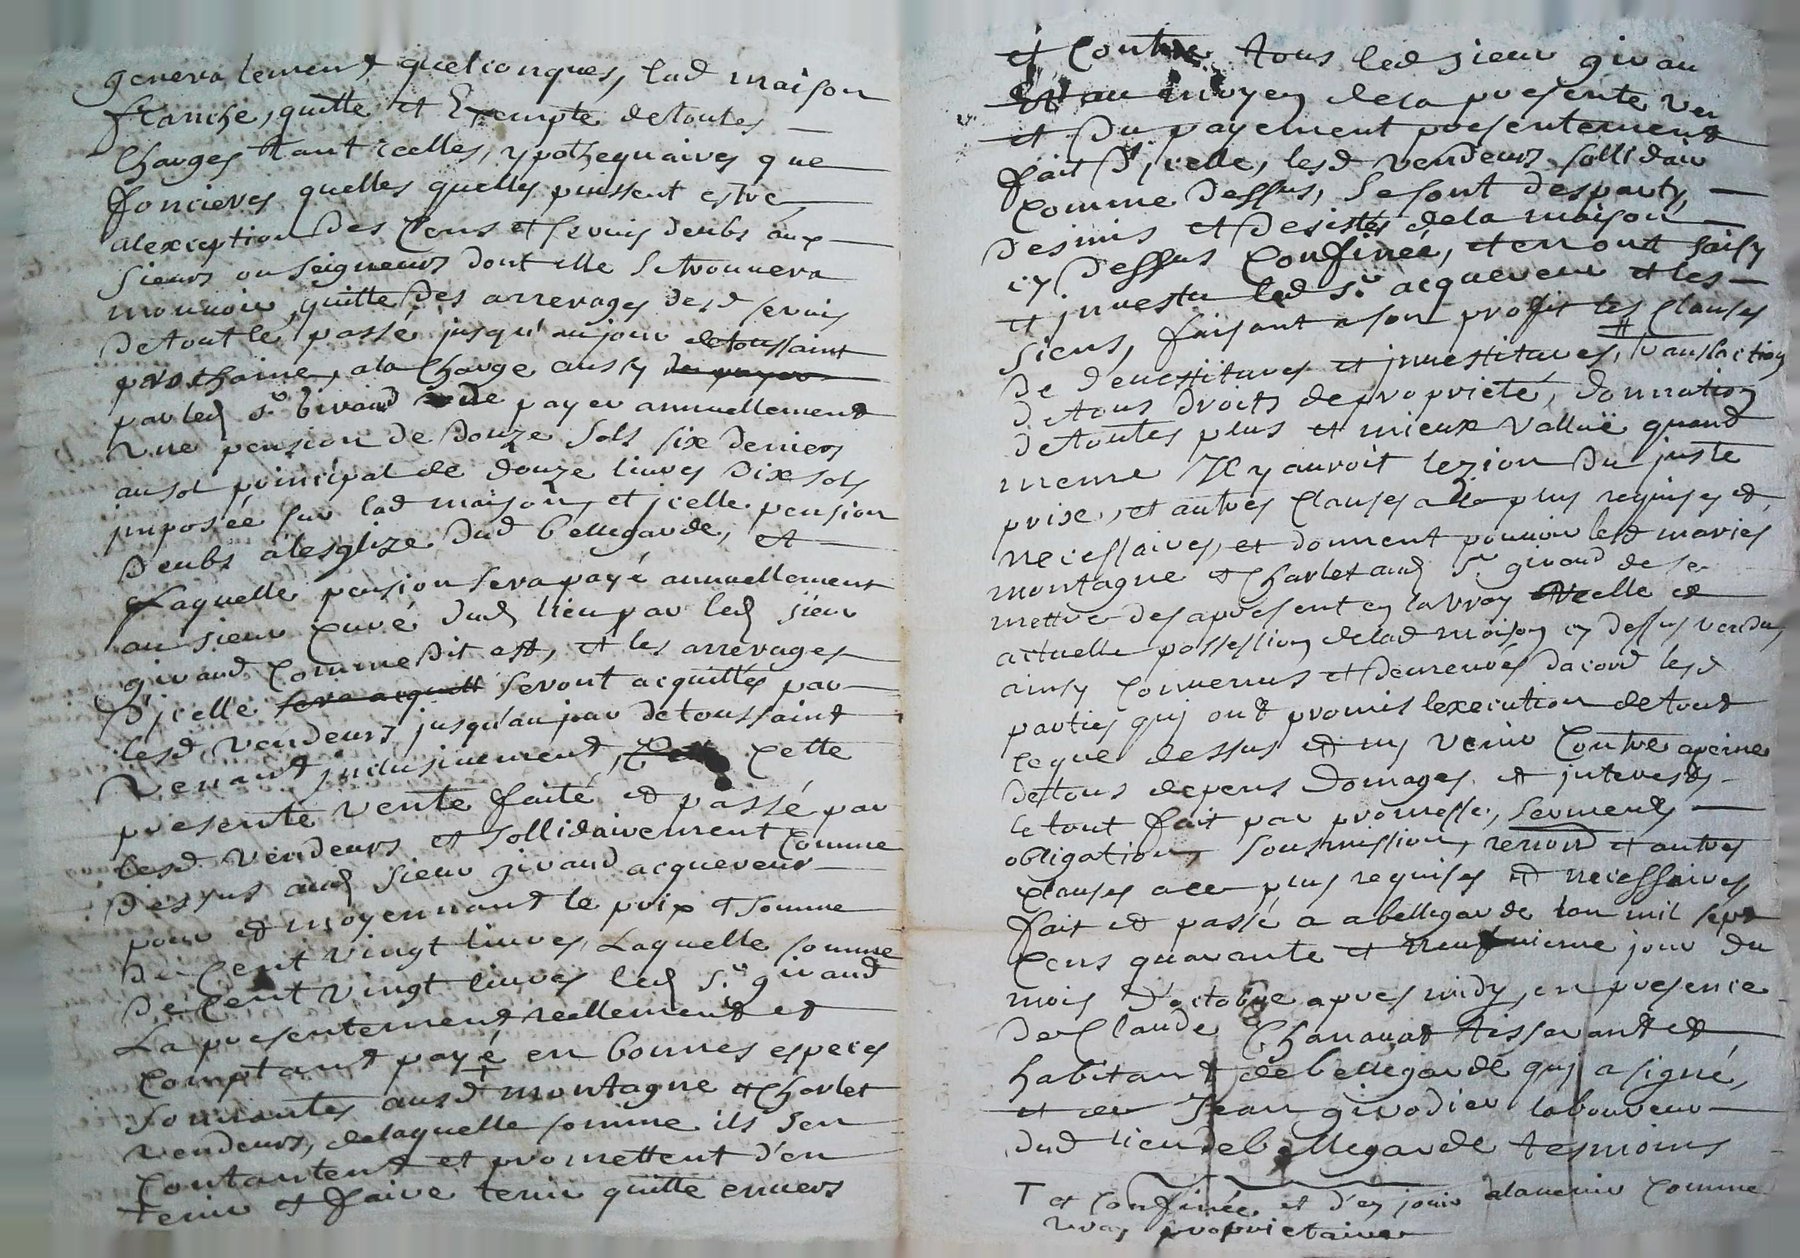 generalement quelconques, lad maison
franche, quitte et Exempte de toutes
charges tant icelles, ypothequaires que
foncieres quelles quelles puissent estre,
alexception des Cens et servis deubs aux
sieurs ou seigneurs dont elle se trouvera
mouvoir, quitte des arrerages desd servis
de tout le passé jusqu'au jour de toussaint
prochaine, ala charge aussy de payer
par led sr. Giraud de payer annuellement
Une pension de douze sols six deniers
au sol principal de douze livres dix sols
imposée sur lad maison, et jcelle pension
deubs a lesglize dud bellegarde, et
Laquelle pension sera payé annuellement
au sieur Curé dud lieu par led sieur
giraud comme dit est, et les arrerages
d'jcelle sera acquitt seront acquittés par
lesd vendeurs jusqu'au jour de toussaint
venant jnclusivement, Cette
presente vente faite et passé par
lesd vendeurs et sollidairement comme
dessus aud sieur giraud acquereur
pour et moyennant le prix et somme
de Cent vingt livres, Laquelle somme
de Cent vingt livres led sr. giraud
La presentement reellement et
comptant payé en bonnes especes
sonnantes ausd montagne et Charlet
vendeurs, de laquelle somme ils s'en
contantent et promettent d'en
tenir et faire tenir quitte envers
et contre tous led sieur girau
Et au moyen de la presente ven
et du payement presentement
fait d'jcelle, lesd vendeurs sollidair
comme dessus, se sont desparty,
desmis et desistés de la maison
cy dessus Confinée, et en ont saisy
et jnvestu led sr. acquereur et les
siens, faisant a son profit les clauses
de devestitures et jnvestitures, translaction
de tous droits de propriété, donnation
de toutes plus et mieux vallüe quand
meme Il y auroit lezion du juste
prix, et autres clauses a la plus requises et
necessaires, et donnent pouvoir lesd maries
montagne et Charlet aud sr. giraud de se
mettre des apresent en la vray reelle et
actuelle possession de lad maison cy dessus vendue
ainsy convenus et demeurés dacord lesd
parties qui ont promis lexecution de tout
ce que dessus et ny venir Contre apeine
de tous depens domages et jnterests
le tout fait par promesse, serments
obligation, soubmission, renond et autres
clauses a ce plus requises et necessaires
fait et passé a bellegarde lan mil sept
cens quarante et neufvieme jour du
mois d'octobre apres midy, en presence
de Claude Chanavat tisserant et
habitant de bellegarde qui a signé,
et de Jean girodier laboureur
dud lieu de bellegarde tesmoins
T et Confinée et d'en jouir alavenir comme
vray proprietaire